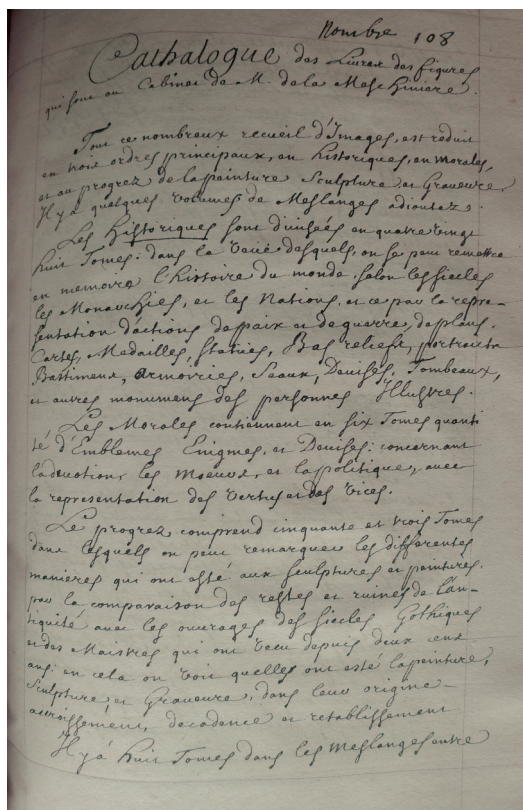 Nombre 108
Cathalogue des Liures des figures
qui sont au Cabinet de M. de la Meschiniere.
Tout ce nombreux recueil d'Images, est reduit
en trois ordres principaux, en historiques, en morales,
et au progrez de la peinture Sculpture et Graveure,
Il y a quelques volumes de Meslanges adioutez.
Les historiques sont diuisées en quatre vingt
huit Tomes: dans la veüe desquels, on se peut remettre
en memoire l'histoire du monde, selon les siecles
les Monarchies, et les Nations, et ce par la repre-
sentation d'actions de paix et de guerre, de plans,
Cartes, Medailles, statües, Bas reliefs, portraits
Bastimens, armoiries, Seaux, Deuises, Tombeaux,
et autres monumens des personnes Illustres.
Les Morales contiennent en six Tomes quanti
té d'Emblemes Enigmes, et Deuises: concernant
la deuotion, les moeurs, et la politique, auec
la representation des vertus et des vices.
Le progrez comprend cinquante et trois Tomes
dans lesquels on peut remarquer les differentes
manieres qui ont esté aux sculptures et peintures.
par la comparaison des restes et ruines de l'an-
tiquité auec les ouurages des siecles Gothiques
et des Maistres qui ont vecu depuis deux cens
ans: en cela on voit quelles ont esté la peinture,
Sculpture, et Graveure, dans leur origine
accroissement, decadence et retablissement
Il y a huit Tomes dans les meslanges entre